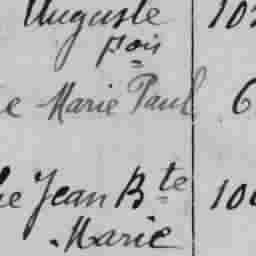 Auguste 10
pois
e Marie Paul 6
he Jean Bte 10
Marie